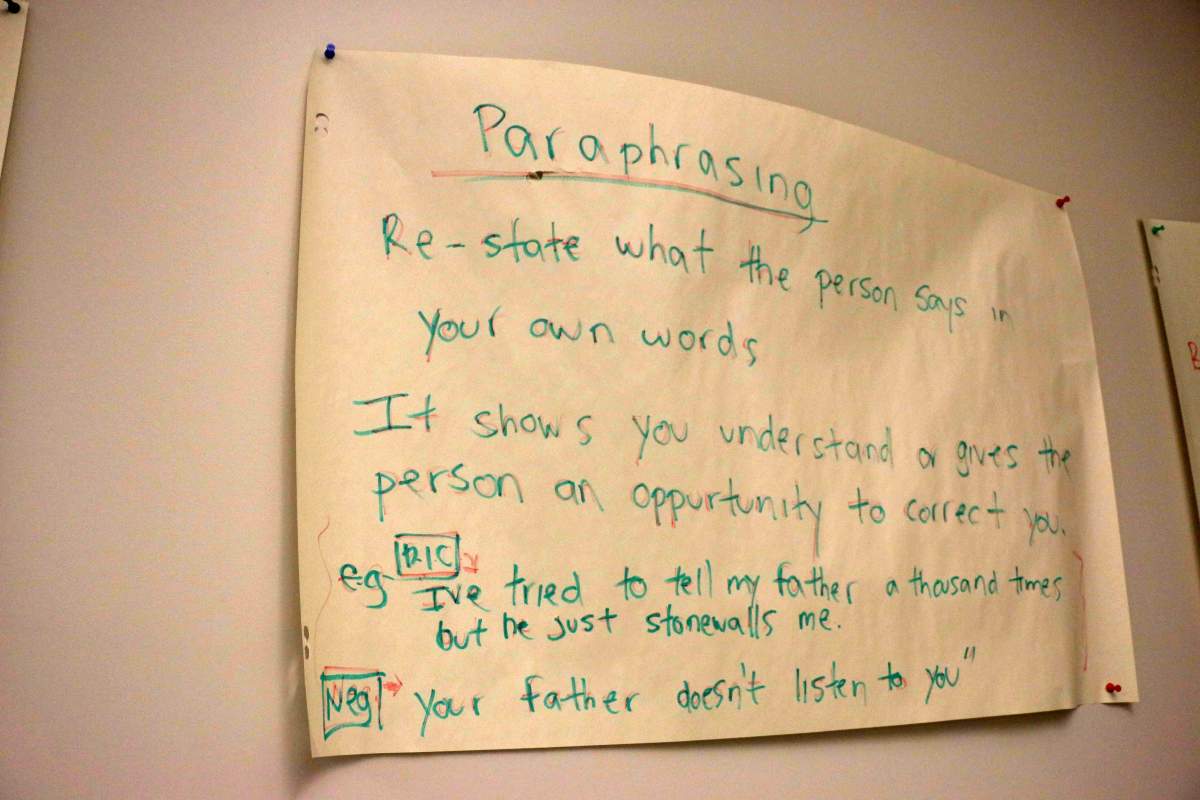 Paraphrasing
Re-state what the person says in
your own words
It shows you understand or gives the
person an oppurtunity to correct you.
e.g
I've tried to tell my father a thousand times
but he just stonewalls me.
Neg your father doesn't listen to you"
B